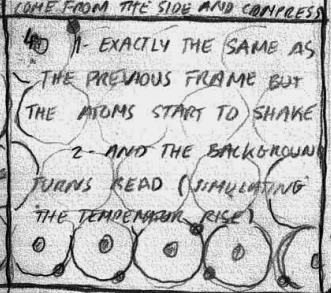 COME FROM THE SIDE AND COMPRESS
4
1- EXACTLY THE SAME AS
THE PREVIOUS FRAME BUT
THE ATOMS START TO SHAKE
2- AND THE BACKGROUND
TURNS READ (SIMULATING
THE TEMPERATUR RISE)